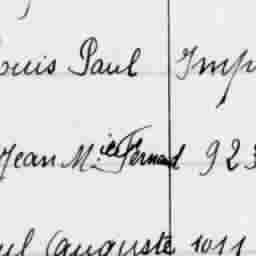 ouis Paul Imp
Jean M.ie Fernand 923
ul Auguste 1011